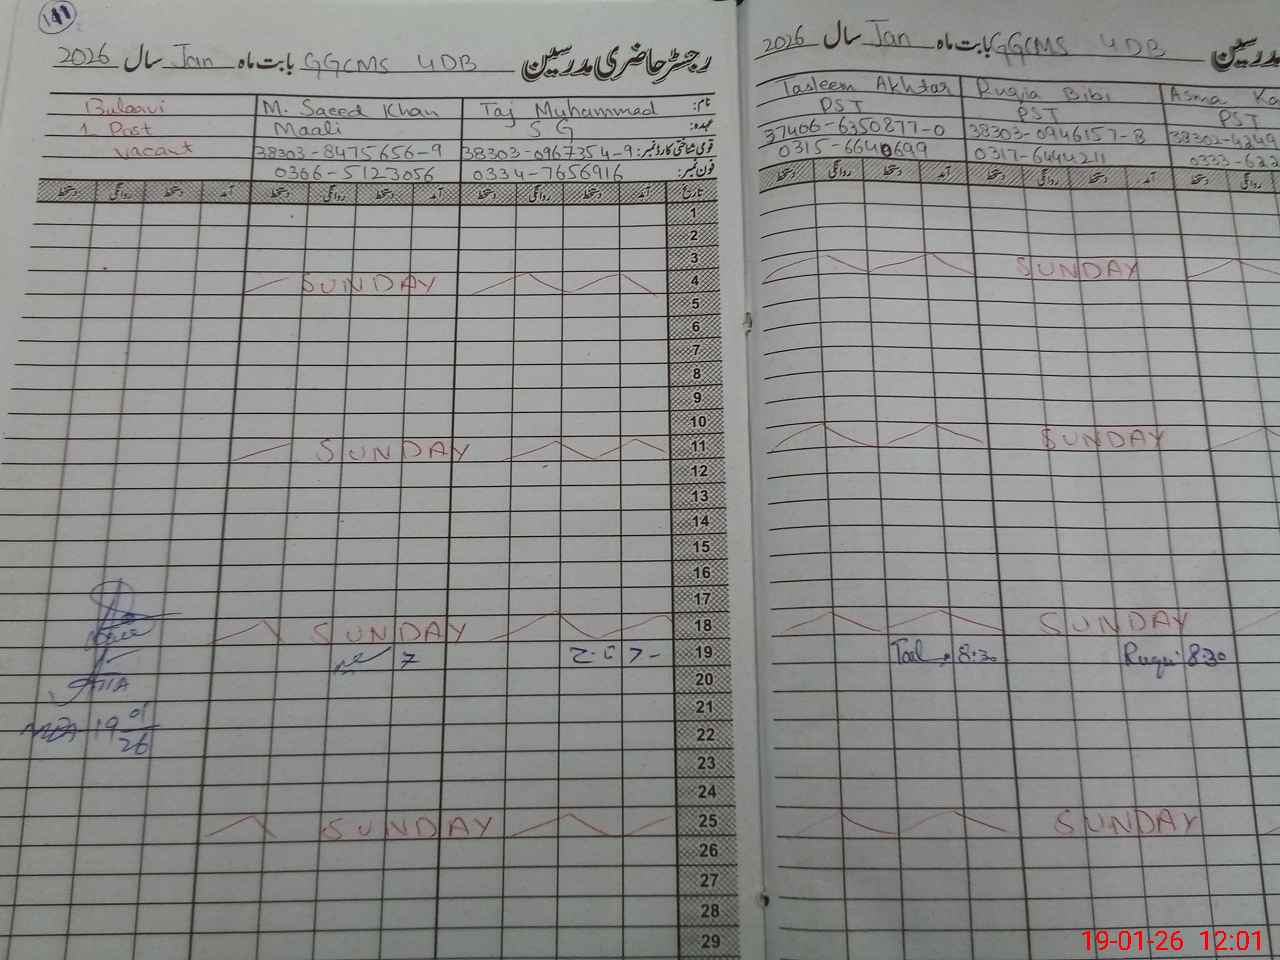 141
رجسٹر حاضری مدرسین GGCMS 4DB بابت ماہ Jan سال 2026
نام: Taj Muhammad M. Saeed Khan Bulaavi
عہدہ: S G Maali 1 Post
قومی شناختی کارڈ نمبر: 38303-0967354-9 38303-8475656-9 vacant
فون نمبر: 0334-7656916 0306-5123056
تاریخ آمد دستخط روانگی دستخط آمد دستخط روانگی دستخط آمد دستخط روانگی دستخط
1
2
3
4 SUNDAY
5
6
7
8
9
10
11 SUNDAY
12
13
14
15
16
17
18 SUNDAY
19 7
20
21
22
23
24
25 SUNDAY
26
27
28
29
AEA 19 01
26
مدرسین GGCMS 4DB بابت ماہ Jan سال 2026
Tasleem Akhtar Ruqia Bibi Asma
PST PST PST
37406-6350877-0 38303-0946157-8 38302-
0315-6640699 0317-6444211 0333-
دستخط روانگی دستخط آمد دستخط روانگی دستخط آمد دستخط روانگی
SUNDAY
SUNDAY
SUNDAY
8:30 Ruqi 8:30
SUNDAY
19-01-26 12:01